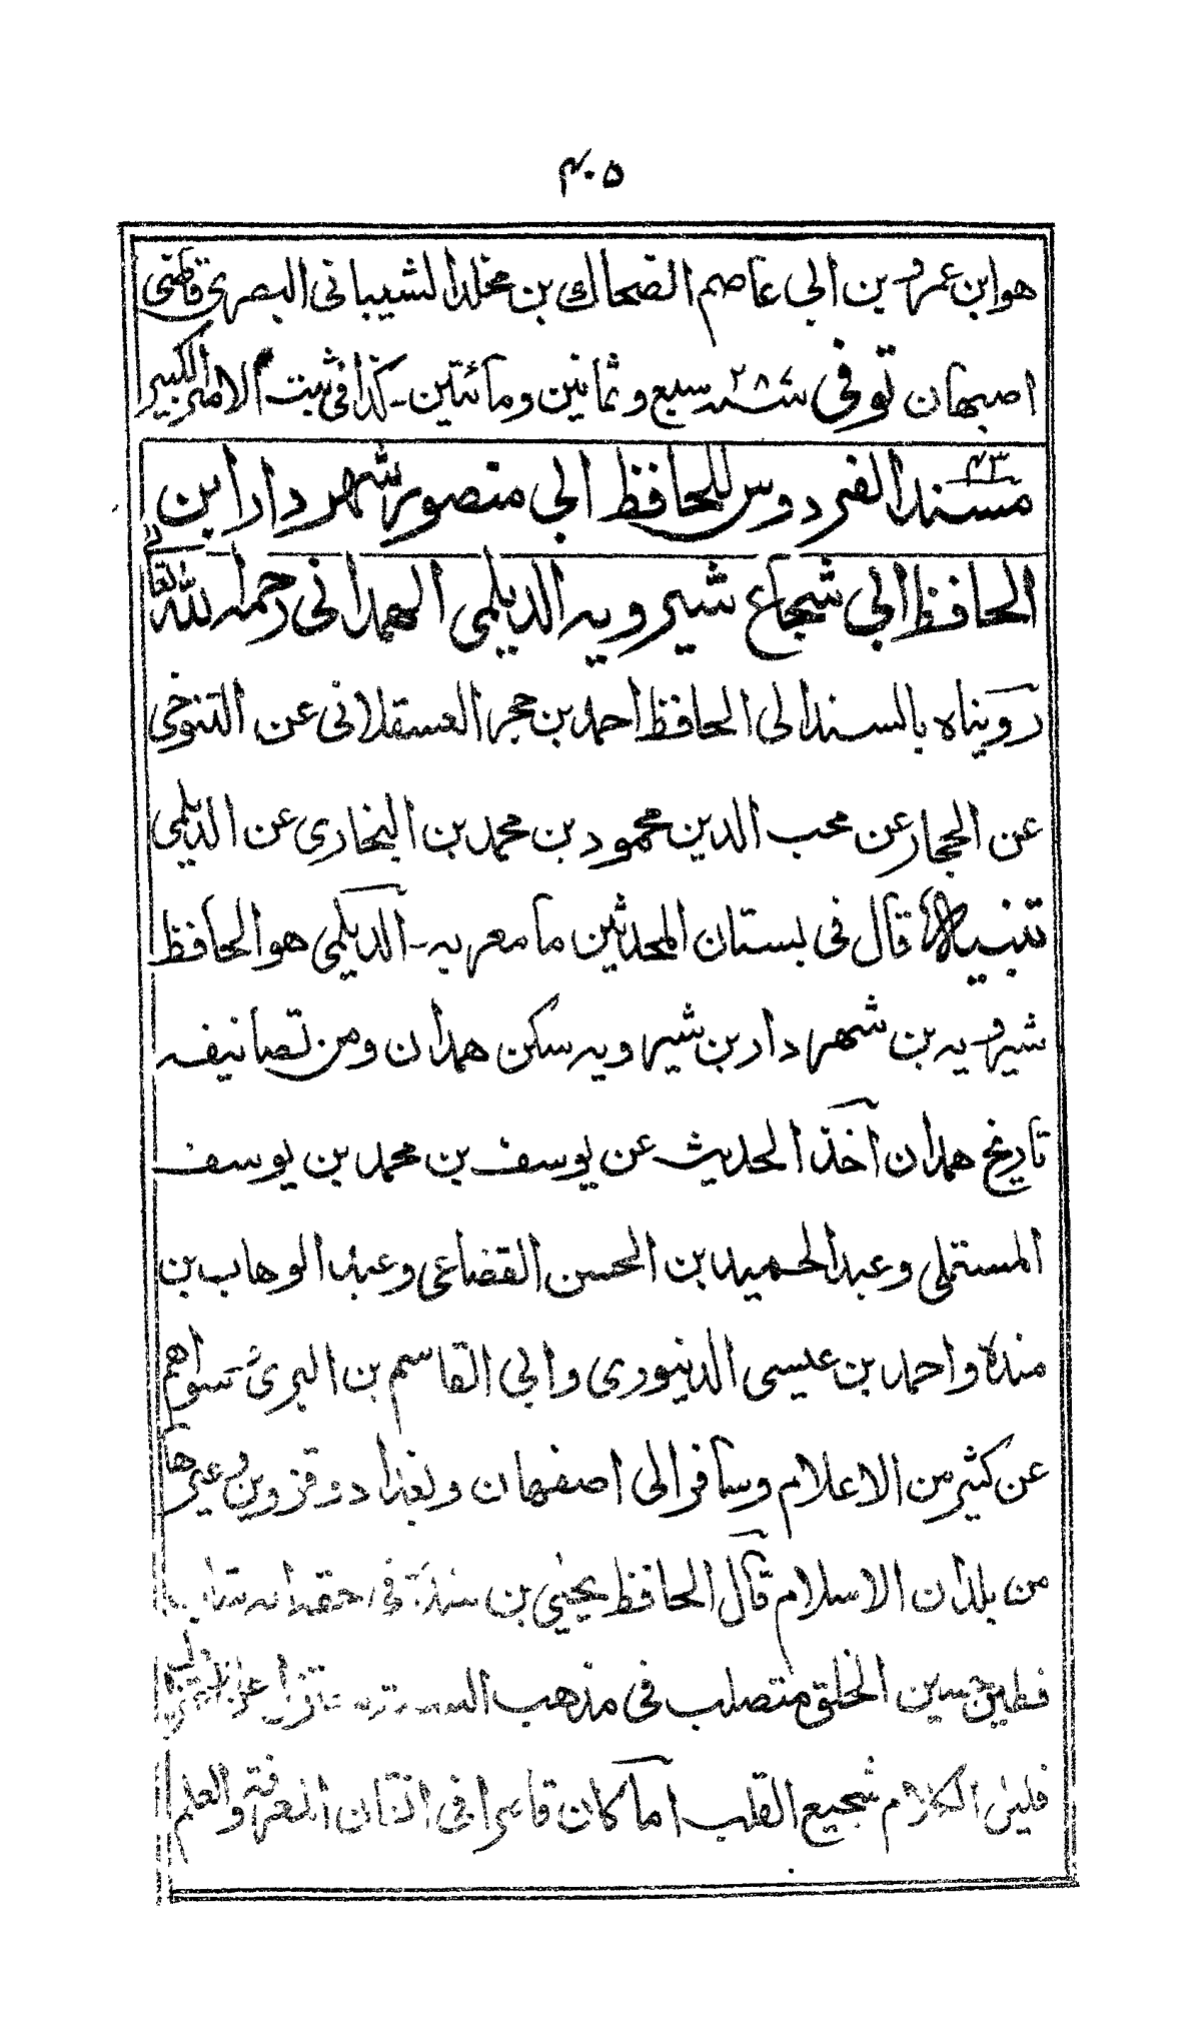 ٤٠٥
هو ابن عمرو بن ابی عاصم الضحاك بن مخلد الشیبانی البصری قاضی
اصبهان توفی سنہ ٢٨٧ سبع و ثمانین ومائتین۔ کذا فی ثبت الامیر الکبیر
٤٣ مسند الفردوس للحافظ ابی منصور شهر دار ابن
الحافظ ابی شجاع شیرویہ الدیلمی الهمدانی رحمہ اللہ تعالی
رویناه بالسند الی الحافظ احمد بن حجر العسقلانی عن التنوخی
عن الحجار عن محب الدین محمود بن محمد بن البخاری عن الدیلمی
تنبیہ قال فی بستان المحدثین ما معربہ۔ الدیلمی هو الحافظ
شیرویہ بن شهر دار بن شیرویہ سکن همدان ومن تصانیفہ
تاریخ همدان اخذ الحدیث عن یوسف بن محمد بن یوسف
المستملی وعبد الحمید بن الحسن القضاعی وعبد الوهاب بن
مندة واحمد بن عیسی الدینوری وابی القاسم بن البری وسواهم
عن کثیر من الاعلام وسافر الی اصفهان وبغداد وقزوین وغیرها
من بلدان الاسلام قال الحافظ یحیی بن مندة فی حقہ انہ شاب
فطین حسین الخلق متصلب فی مذهب السنة
فلیل الکلام شجیع القلب اما کان قاصرا فی اتقان المعرفة والعلم